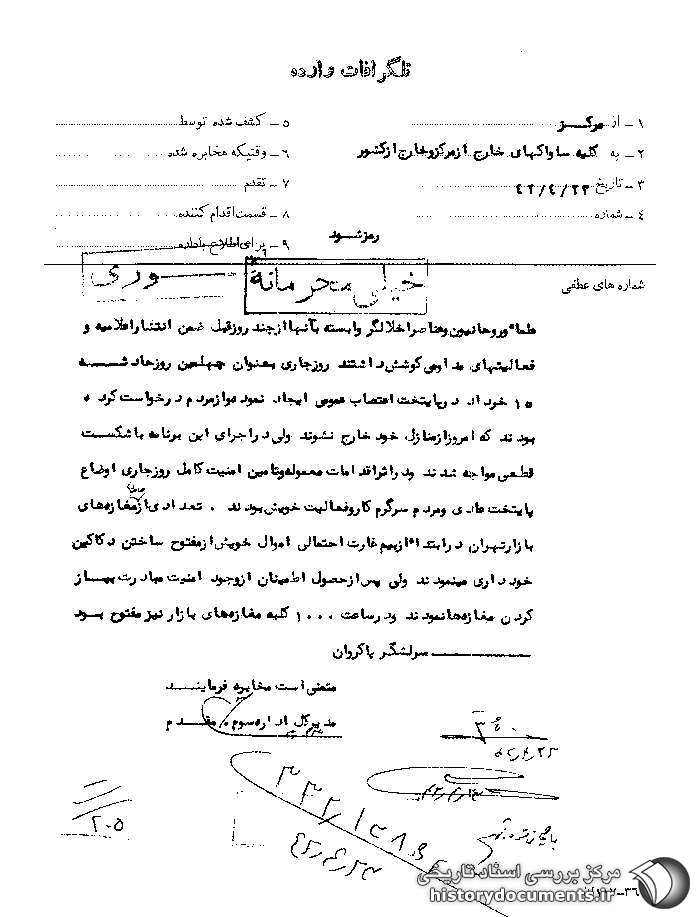 تلگرافات وارده
۱ – از مرکز
۵ – کشف شده توسط
۲ – به کلیه ساواکهای خارج از مرکز و خارج از کشور
۶ – وقتیکه مخابره شده
۳ – تاریخ ۴۲/۴/۲۳
۷ – تقدم
۴ – شماره
۸ – قسمت اقدام کننده
رمز شود
۹ – برای اطلاع باداده
شماره های عطفی
خیلی محرمانه
علماء و روحانیون و عناصر اخلالگر وابسته بآنها از چند روز قبل ضمن انتشار اعلامیه و
فعالیتهای مداومی کوشش داشتند روز جاری بعنوان چهلمین روز حادثه
۱۵ خرداد در پایتخت اعتصاب عمومی ایجاد نموده و از مردم درخواست کرده
بودند که امروز از منازل خود خارج نشوند ولی در اجرای این برنامه با شکست
قطعی مواجه شدند و در اثر اقدامات معموله و تامین امنیت کامل روز جاری اوضاع
پایتخت عادی و مردم سرگرم کار و فعالیت خویش بودند . تعدادی از مغازه های
بازار تهران در ابتداء از بیم غارت احتمالی اموال خویش از مفتوح ساختن دکاکین
خودداری مینمودند ولی پس از حصول اطمینان از وجود امنیت مبادرت بباز
کردن مغازه ها نمودند و در ساعت ۱۰۰۰ کلیه مغازه های بازار نیز مفتوح بود
سرلشگر پاکروان
متمنی است مخابره فرمایند
مدیر کل اداره سوم . مقدم
۳۴۰
۴۲/۴/۲۳
۲۰۵
۴۲/۴/۲۳
مرکز بررسی اسناد تاریخی
historydocuments.ir